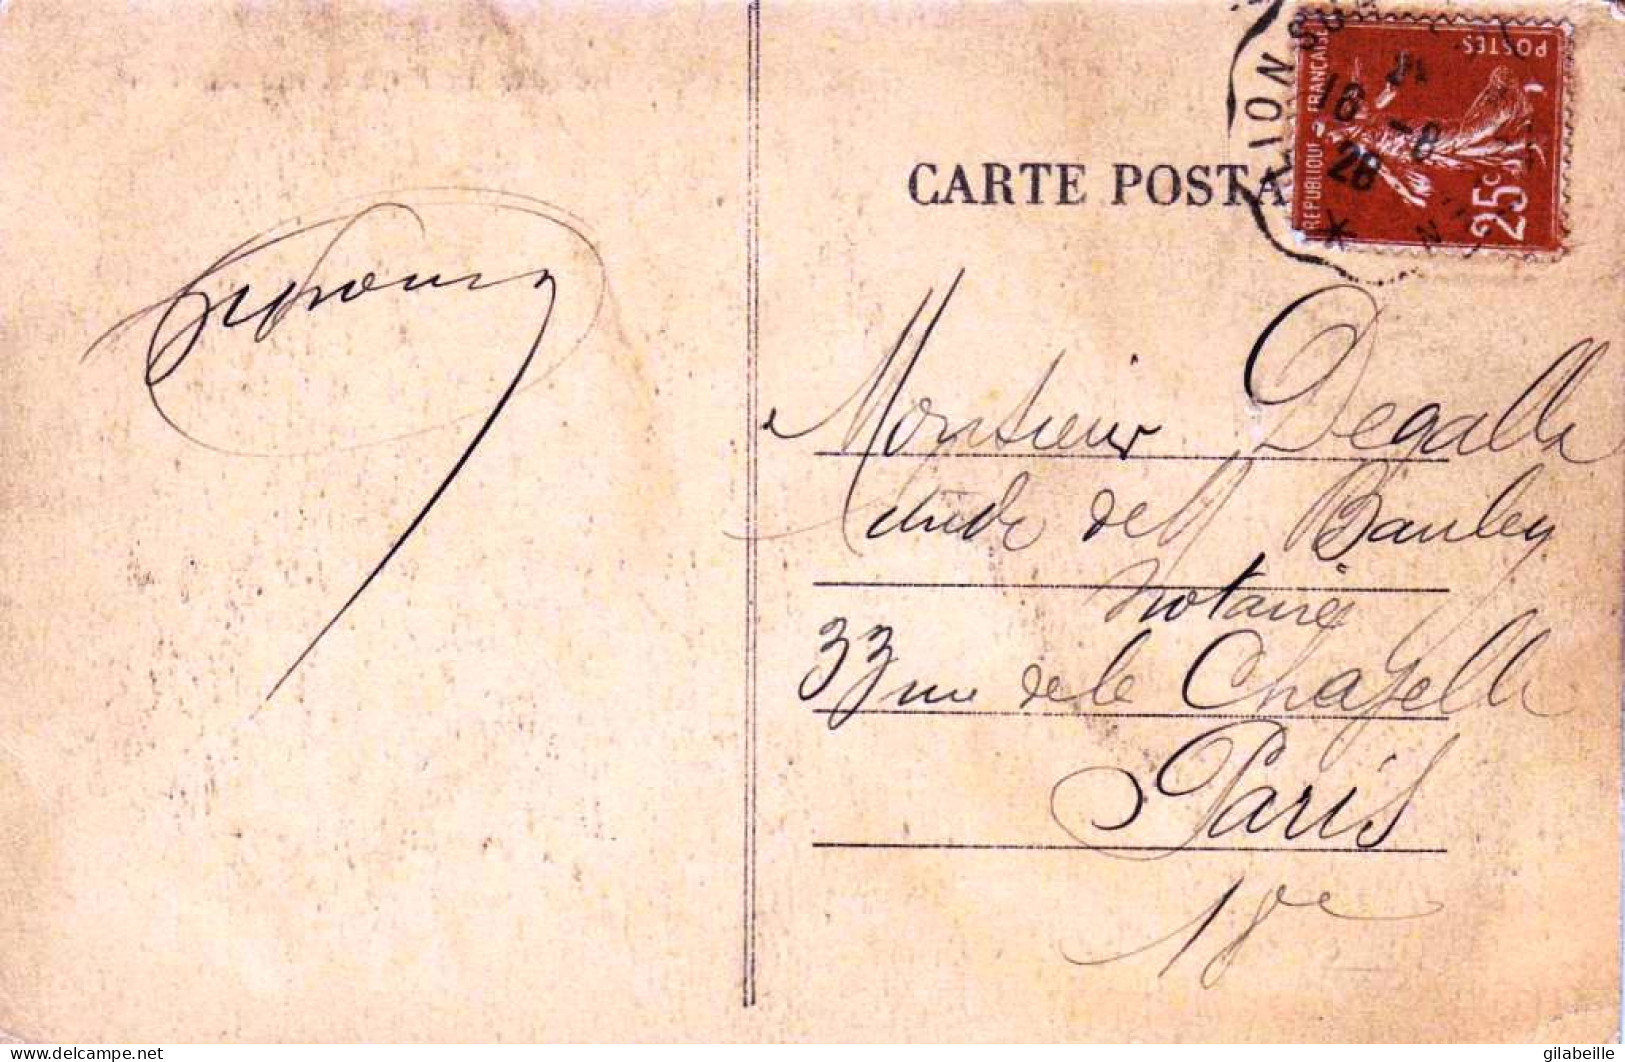 CARTE POSTA
POSTES
REPUBLIQUE FRANCAISE
25c
LION SU
18 - 8
28
Monsieur Degalle
Etude de M Bauley
Notaire
33 rue de la Chapelle
Paris
18e
delcampe.net
gilabeille